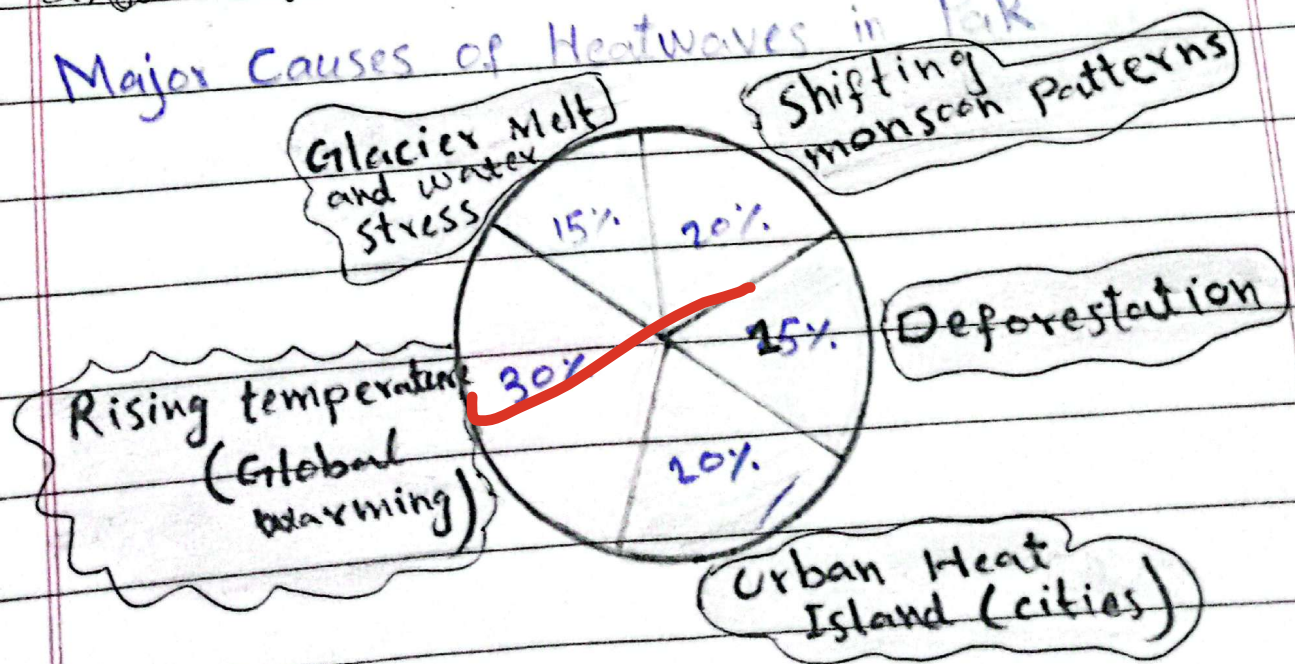 Major Causes of Heatwaves in Pak
Glacier Melt
and water
stress
Shifting
monsoon patterns
15%
20%
Deforestation
15%
30%
Rising temperature
(Global
warming)
20%
Urban Heat
Island (cities)